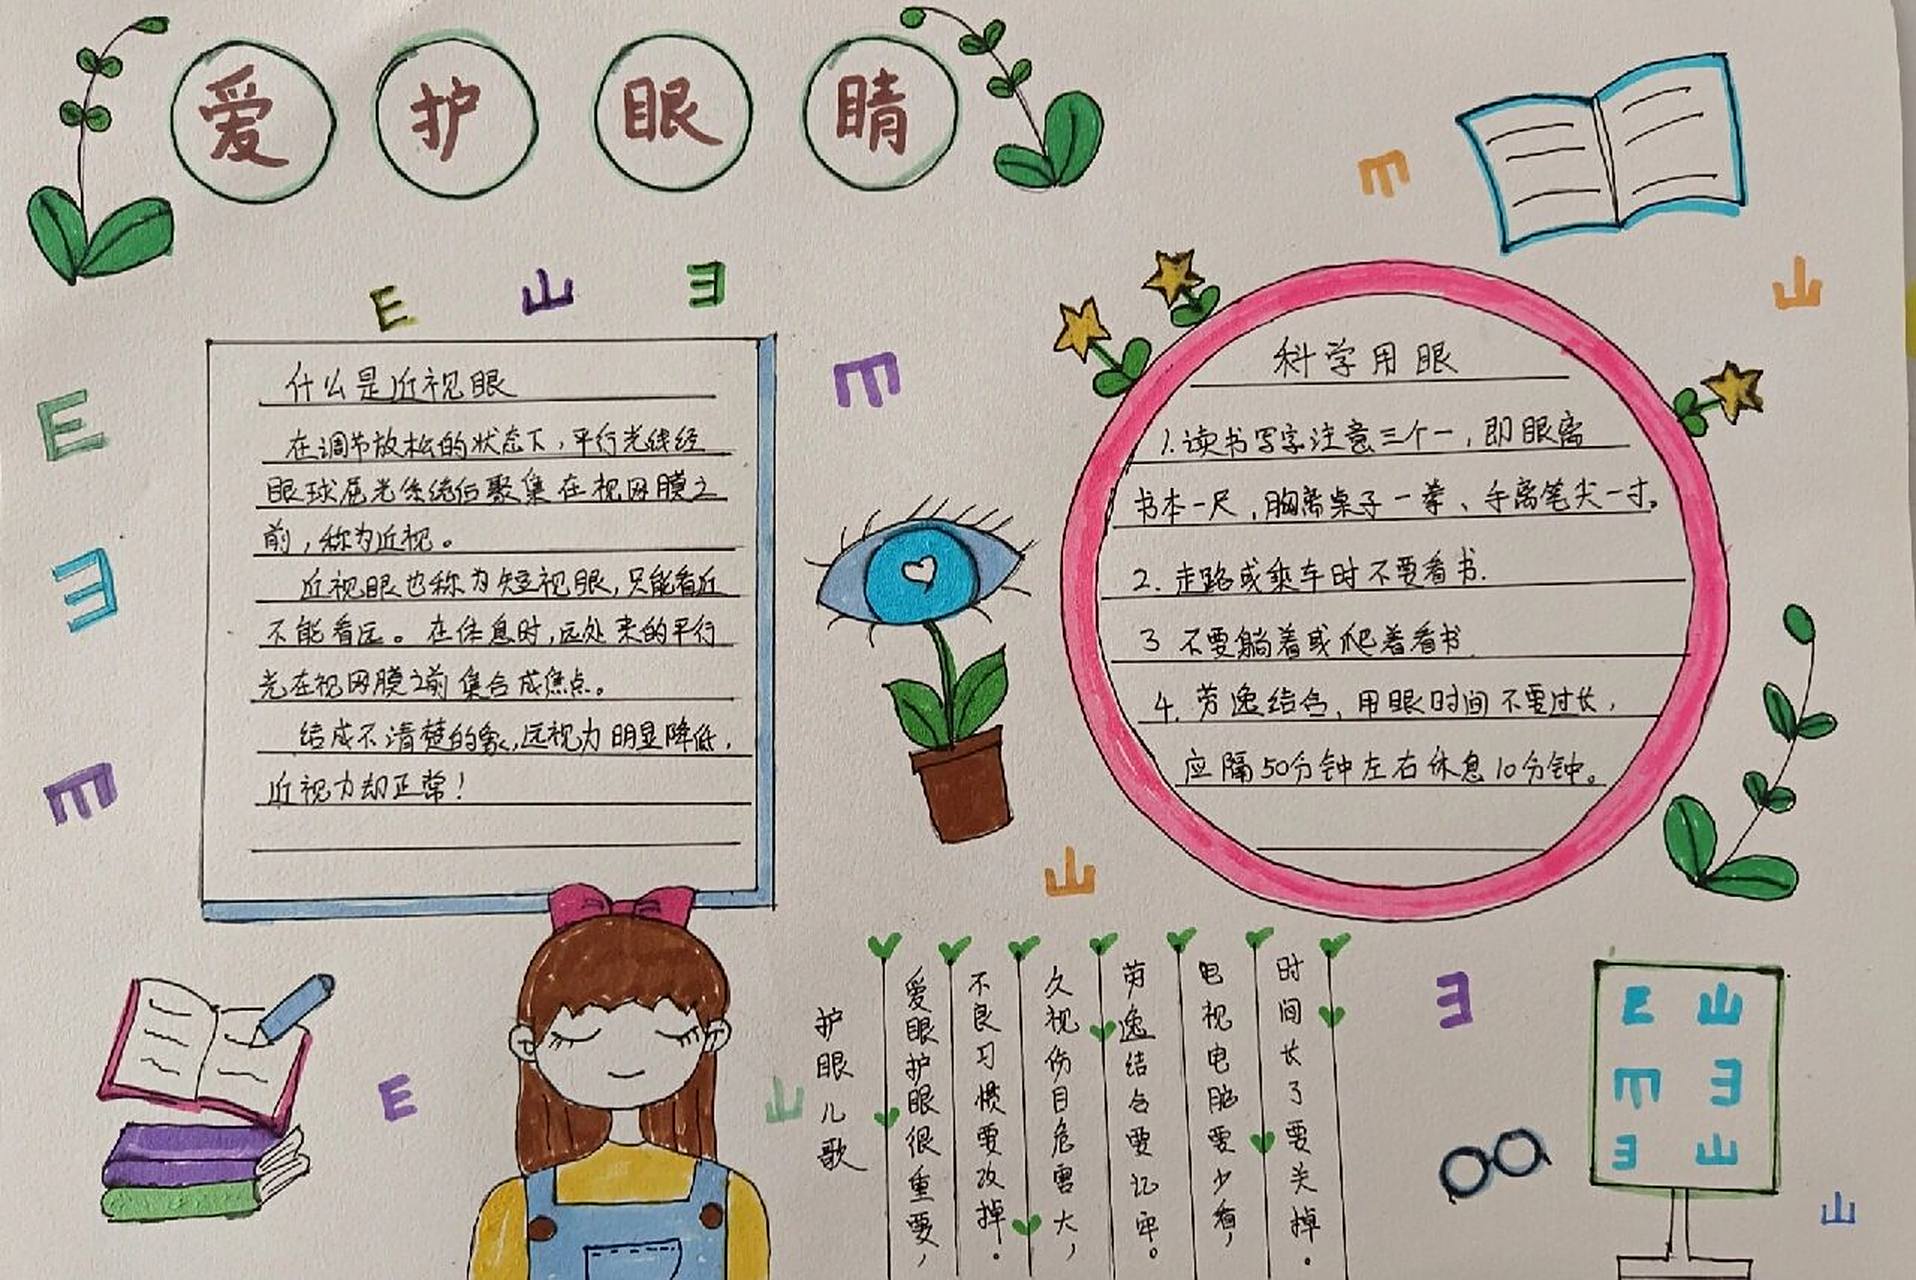 爱护眼睛
什么是近视眼
在调节放松的状态下,平行光线经
眼球屈光系统后聚集在视网膜之
前,称为近视。
近视眼也称为短视眼,只能看近
不能看远。在休息时,远处来的平行
光在视网膜之前集合成焦点。
结成不清楚的象,远视力明显降低,
近视力却正常!
科学用眼
1.读书写字注意三个一,即眼离
书本一尺,胸离桌子一拳、手离笔尖一寸。
2.走路或乘车时不要看书.
3 不要躺着或爬着看书.
4.劳逸结合,用眼时间不要过长,
应隔50分钟左右休息10分钟。
护眼儿歌
爱眼护眼很重要,
不良习惯要改掉.
久视伤目危害大,
劳逸结合要记牢。
电视电脑要少看,
时间长了要关掉.
E
山
E
E
E
E
山
E
山
E
E
山
山
E
E 山
E E
E 山
山